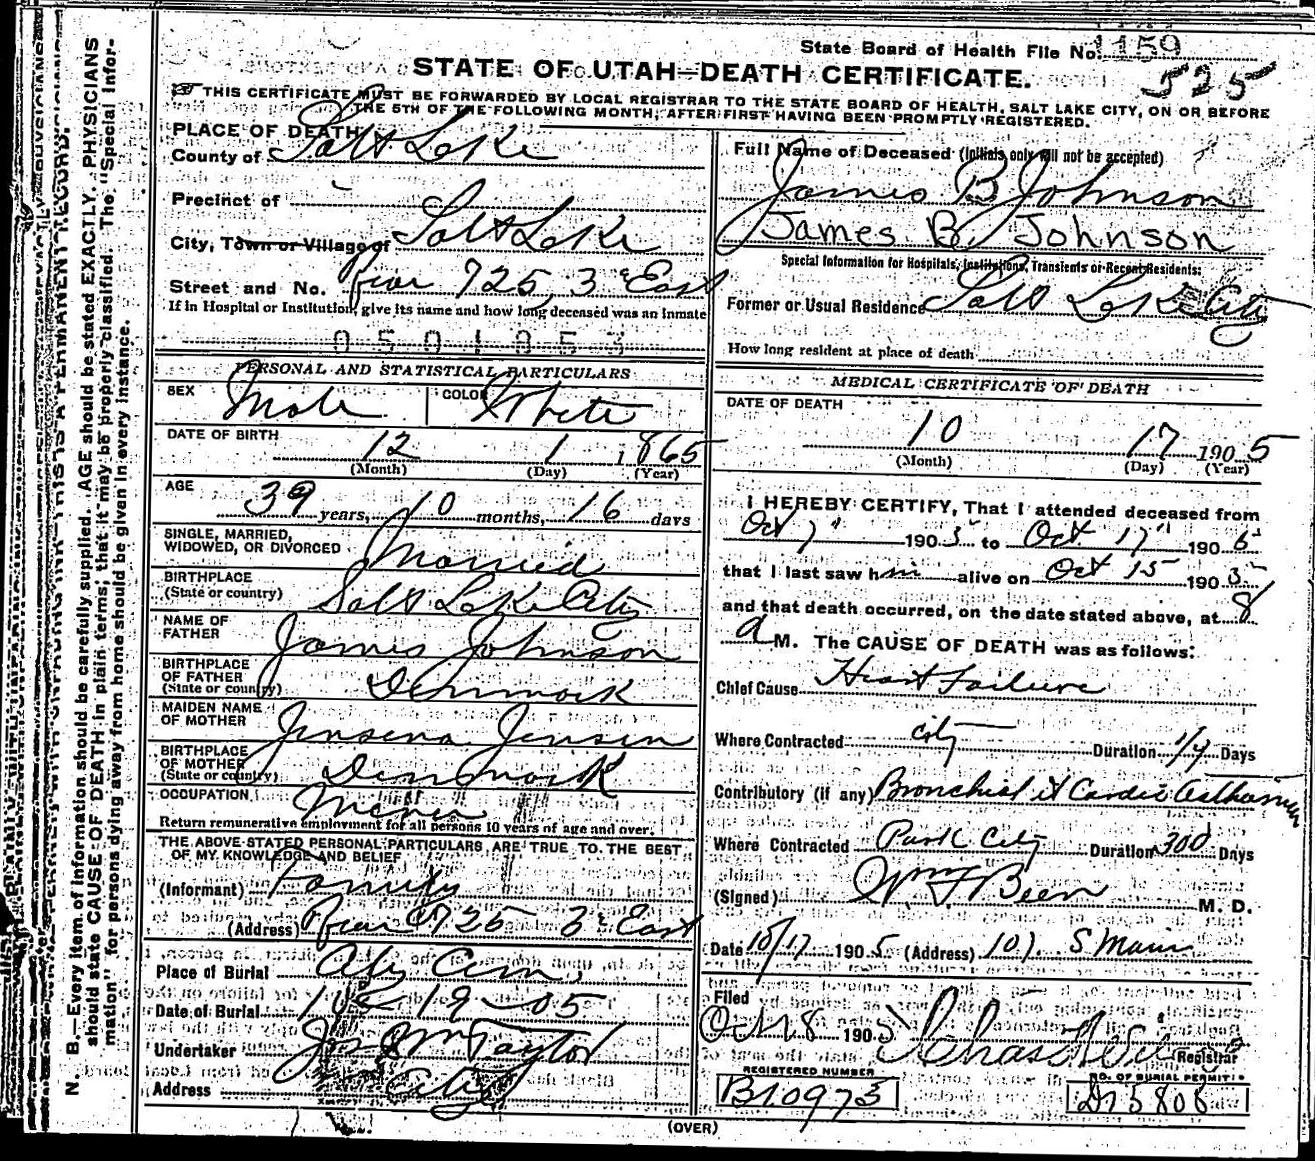 State Board of Health File No. 1159
525
STATE OF UTAH—DEATH CERTIFICATE.
THIS CERTIFICATE MUST BE FORWARDED BY LOCAL REGISTRAR TO THE STATE BOARD OF HEALTH, SALT LAKE CITY, ON OR BEFORE
THE 5TH OF THE FOLLOWING MONTH, AFTER FIRST HAVING BEEN PROMPTLY REGISTERED.
PLACE OF DEATH
County of Salt Lake
Precinct of
City, Town or Village of Salt Lake
Street and No. Rear 725, 3d East
If in Hospital or Institution, give its name and how long deceased was an Inmate
0501853
PERSONAL AND STATISTICAL PARTICULARS
SEX Male COLOR White
DATE OF BIRTH 12 1 1865
(Month) (Day) (Year)
AGE 39 years, 10 months, 16 days
SINGLE, MARRIED,
WIDOWED, OR DIVORCED Married
BIRTHPLACE
(State or country) Salt Lake City
NAME OF
FATHER James Johnson
BIRTHPLACE
OF FATHER
(State or country) Denmark
MAIDEN NAME
OF MOTHER Jensena Jensen
BIRTHPLACE
OF MOTHER
(State or country) Denmark
OCCUPATION Miner
Return remunerative employment for all persons 10 years of age and over.
THE ABOVE STATED PERSONAL PARTICULARS ARE TRUE TO THE BEST
OF MY KNOWLEDGE AND BELIEF
(Informant) Family
(Address) Rear 725 3d East
Place of Burial City Cem
Date of Burial 10-19-05
Undertaker Jos Wm Taylor
Address City
Full Name of Deceased (Initials only will not be accepted)
James B Johnson
James B. Johnson
Special Information for Hospitals, Institutions, Transients or Recent Residents:
Former or Usual Residence Salt Lake City
How long resident at place of death
MEDICAL CERTIFICATE OF DEATH
DATE OF DEATH
10 17 1905
(Month) (Day) (Year)
I HEREBY CERTIFY, That I attended deceased from
Oct 7" 1905 to Oct 17" 1905
that I last saw him alive on Oct 15 1905
and that death occurred, on the date stated above, at 8
a M. The CAUSE OF DEATH was as follows:
Chief Cause Heart Failure
Where Contracted City Duration 1/4 Days
Contributory (if any) Bronchial & Cardiac Asthma
Where Contracted Park City Duration 300 Days
(Signed) Wm F Beer M. D.
Date 10/17 1905 (Address) 101 S Main
Filed
Oct 18 1905 Registrar
REGISTERED NUMBER NO. OF BURIAL PERMIT
B10973 D15808
(OVER)
N. B.—Every item of information should be carefully supplied. AGE should be stated EXACTLY. PHYSICIANS
should state CAUSE OF DEATH in plain terms, that it may be properly classified. The "Special Infor-
mation" for persons dying away from home should be given in every instance.